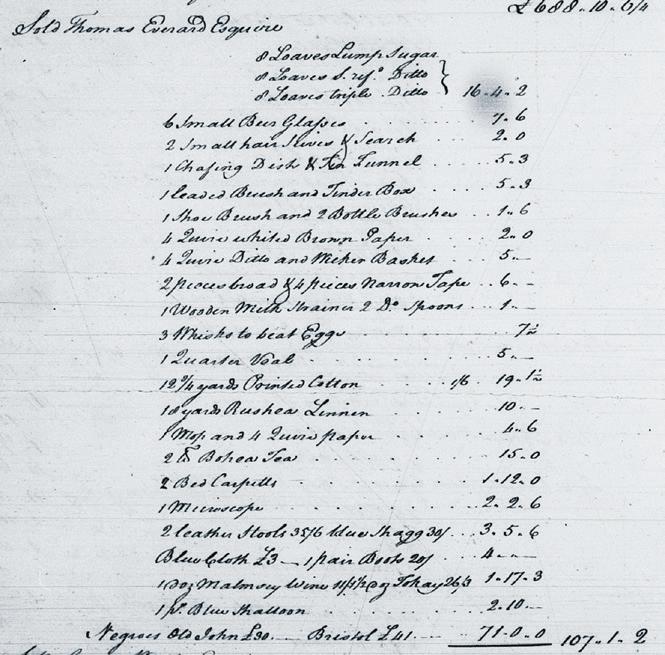 £688..10..6/4
Sold Thomas Everard Esquire
8 Loaves Lump Sugar
8 Loaves S. ref.ᵈ Ditto
8 Loaves triple Ditto } 16..4..2
6 Small Beer Glasses . . . . 7..6
2 Small hair Sives & Search . . . 2..0
1 Chafing Dish & Tin Funnel . . . . 5..3
1 leaded Brush and Tinder Box . . . . 5..3
1 Shoe Brush and 2 Bottle Brushes . . . . 1..6
4 Quire whited Brown Paper . . . . 2..0
4 Quire Ditto and Wicker Basket . . . . 5..—
2 pieces broad & 4 pieces Narrow Tape . . 6..—
1 Wooden Milk Strainer 2 Dº Spoons . . . 1..—
3 Whisks to beat Eggs . . . . 7½
1 Quarter Veal . . . . 5..—
12¾ yards Printed Cotton . . . . 1/6 . 19..1½
18 yards Rushea Linnen . . . . 10..—
1 Mop and 4 Quire paper . . . . 4..6
2 ℔ Bohea Tea . . . . 15..0
2 Bed Carpetts . . . . 1..12..0
1 Microscope . . . . 2..2..6
2 leather Stools 35/6 blue Shagg 30/ . . 3..5..6
Blue Cloth £3 — 1 pair Boots 20/ . . 4..—..—
1 doz Malmsey Wine 11/ ½ doz Tokay 26/3 1..17..3
1 pˢ Blue Shalloon . . . . 2..10..—
Negroes Old John £30..— Bristol £41..— 71..0..0 107..1..2